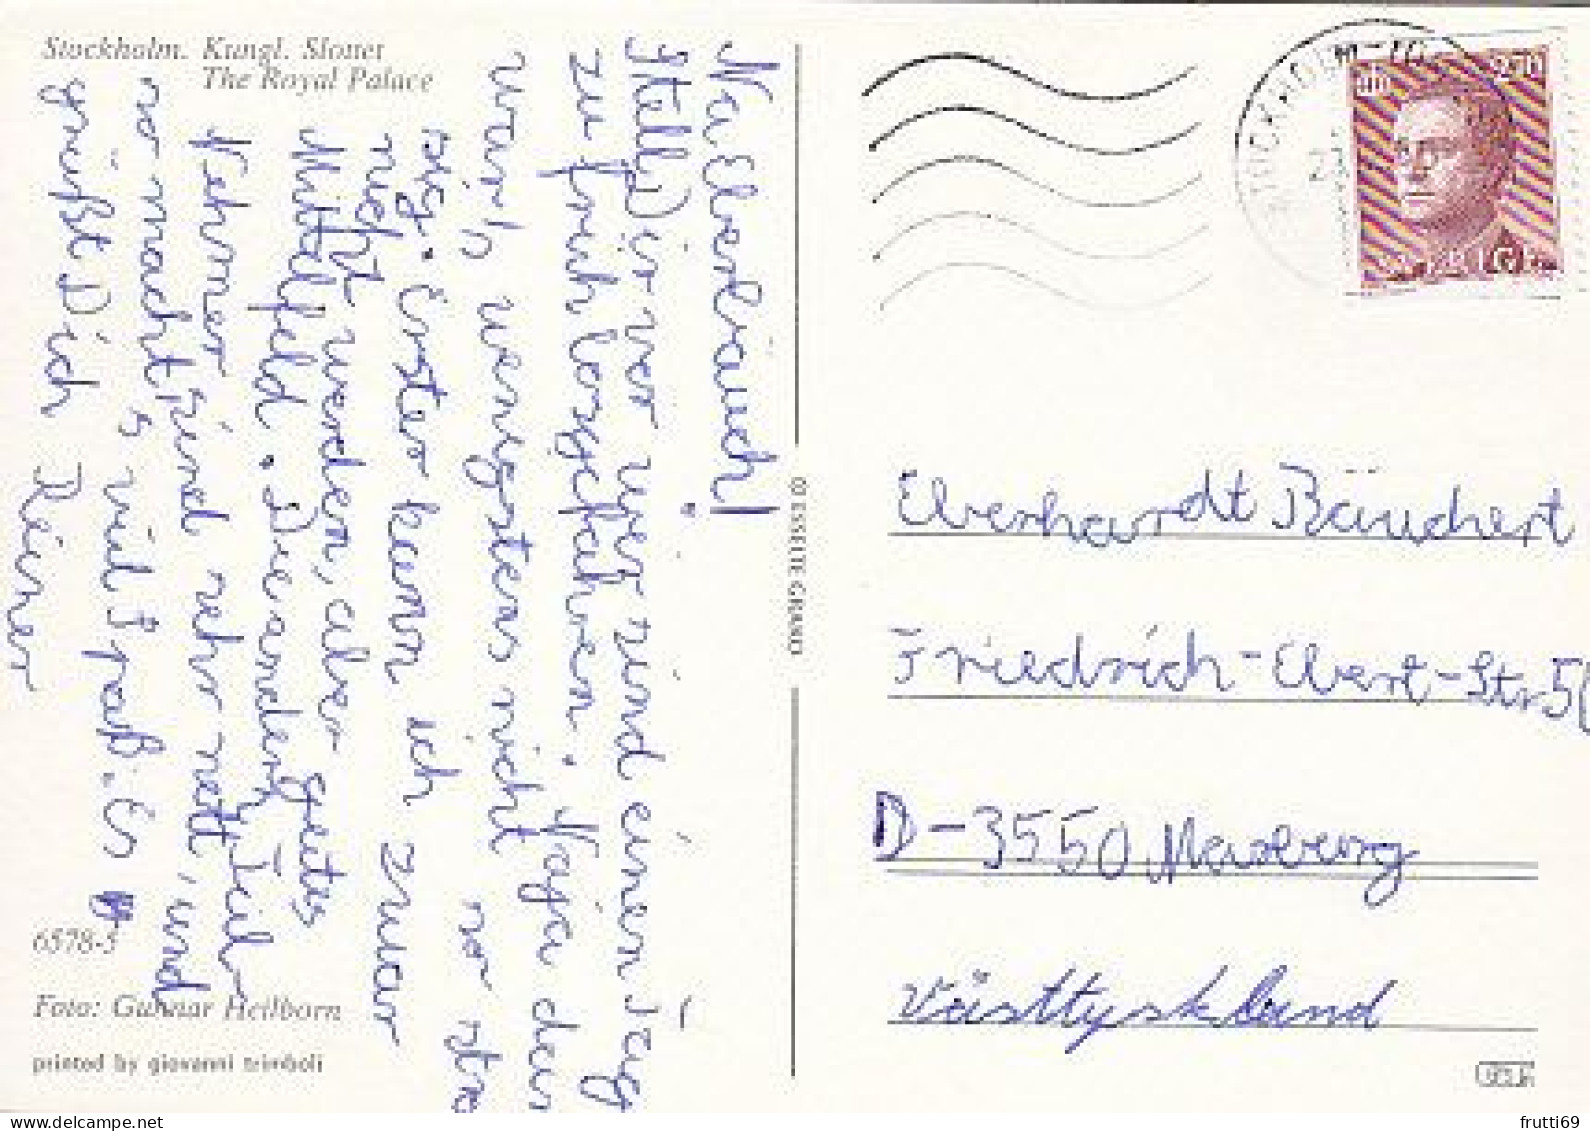 Stockholm. Kungl. Slottet
The Royal Palace
Na Eberbäuch!
Stell Dir vor wir sind einen Tag
zu früh losgefahren. Naja dann
war's wenigstens nicht so stressig.
Erster kann ich zwar
nicht werden, aber gutes
Mittelfeld. Die anderen Teil-
nehmer sind sehr nett, und
so macht's viel Spaß. Es
grüßt Dich
Reiner
6578-5
Foto: Gunnar Heilborn
printed by giovanni trimboli
© ESSELTE GRAND
STOCKHOLM
SVERIGE
Eberhardt Bäuchert
Friedrich-Ebert-Str 5
D-3550 Marburg
Västtyskland
delcampe.net
frutti69